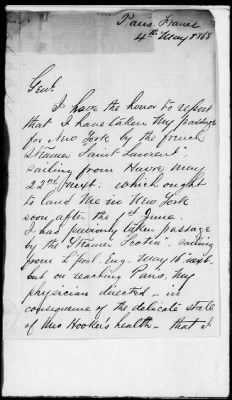 Paris. France
4th May 1868
Genl.
I have the honor to report
that I have taken my passage
for New York by the french
Steamer "Saint Laurent",
sailing from Havre May
22nd next: which ought
to land me in New York
soon after the 1st June.
I had previously taken passage
by the Steamer Scotia", sailing
from L'pool. Eng. May 16" next.
but on reaching Paris, my
physician directed - in
consequence of the delicate state
of Mrs Hooker's health - that I